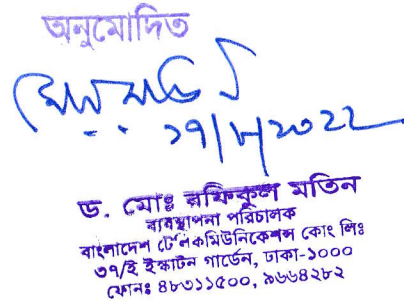 অনুমোদিত
ড. মোঃ রফিকুল মতিন
ব্যবস্থাপনা পরিচালক
বাংলাদেশ টেলিকমিউনিকেশন্স কোং লিঃ
৩৭/ই ইস্কাটন গার্ডেন, ঢাকা-১০০০
ফোনঃ ৪৮৩১১৫০০, ৯৬৬৪২৮২